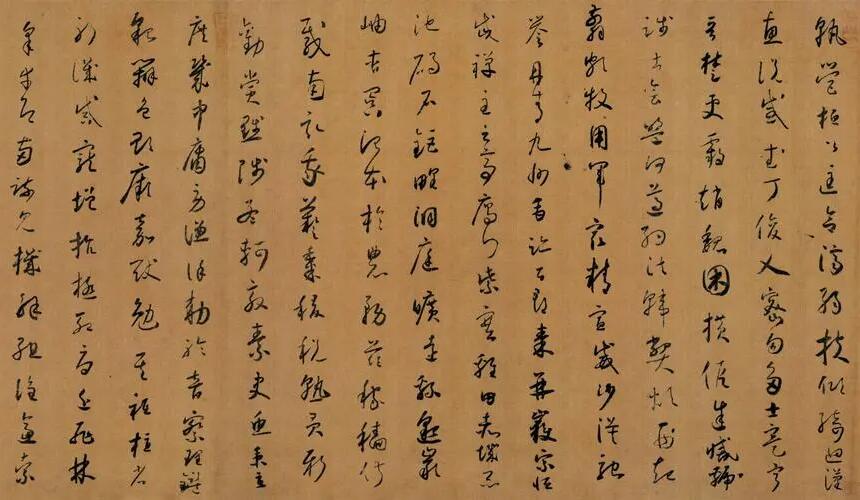 孰營桓公匡合濟弱扶傾綺迴漢
惠說感武丁俊乂密勿多士寔寧
晉楚更霸趙魏困橫假途滅虢
踐土會盟何遵約法韓弊煩刑起
翦頗牧用軍最精宣威沙漠馳
譽丹青九州禹跡百郡秦并嶽宗恒
岱禪主云亭雁門紫塞雞田赤城昆
池碣石鉅野洞庭曠遠綿邈巖
岫杳冥治本於農務茲稼穡俶
載南畝我藝黍稷稅熟貢新
勸賞黜陟孟軻敦素史魚秉直
庶幾中庸勞謙謹勑聆音察理鑒
貌辨色貽厥嘉猷勉其祗植省
躬譏誡寵增抗極殆辱近恥林
皋幸即兩疏見機解組誰逼索